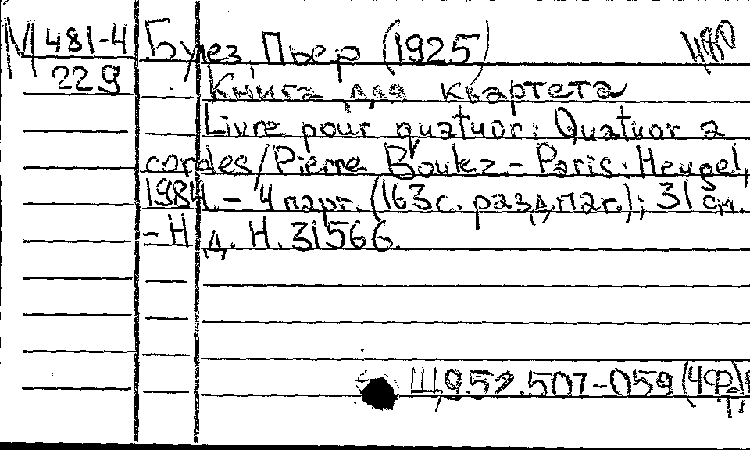 М 481-4 Булез, Пьер (1925) 480
229 Книга для квартета
Livre pour quatuor: Quatuor a
cordes/Pierre Boulez.- Paris: Heugel,
1984.- 4 парт. (163с. разд.паг.); 31 см.
- Н.д. H.31566.
Щ952.507-059(4Фр)